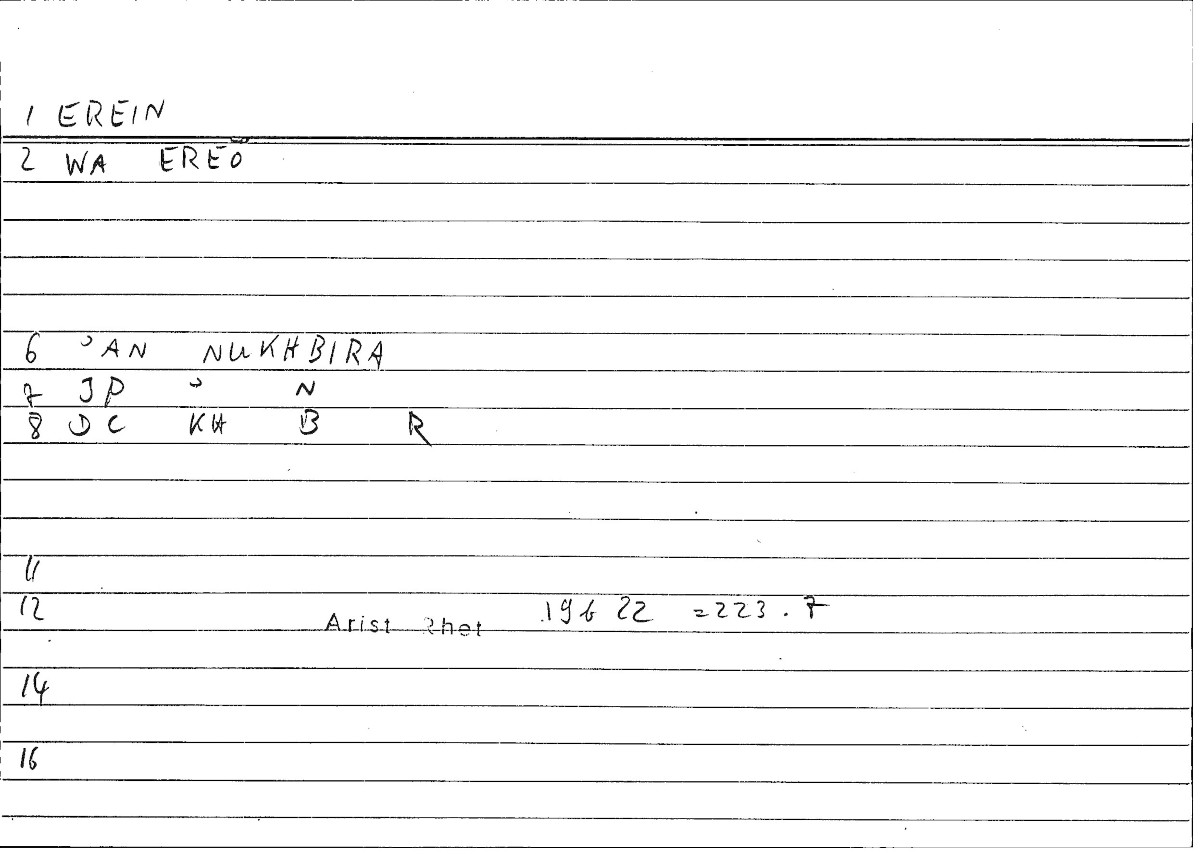 1 EREIN
2 WA EREŌ
6 ʾAN NUKHBIRA
7 JP ʾ N
8 DC KH B R
11
12 Arist Rhet 19b 22 =223.7
14
16